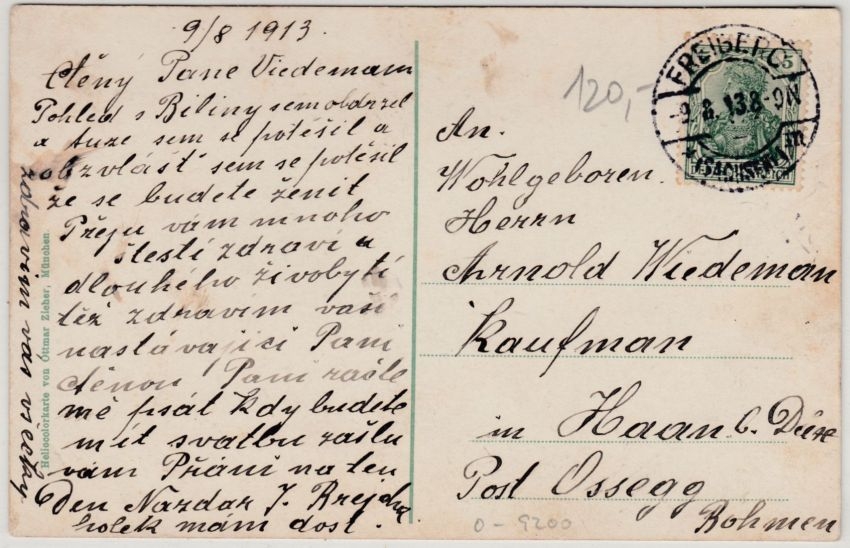 9/8 1913.
Ctěný Pane Viedemam
Pohled s Biliny sem obdrzel
a tuze sem se potěšil a
obzvlášť sem se potěšil
že se budete ženit
Přeju vám mnoho
štestí zdraví a
dlouhého živobytí
též zdravím vaší
nastávající Pani
ctěnou Pani zašle
mě psát kdy budete
mít svatbu zašlu
vám Přání na ten
Den Nazdar J. Brejcha
holek mám dost.
zdravim vás všechy
Heliocolorkarte von Ottmar Zieher, München.
120,-
FREIBERG
-9.8.13.8-9N
*(SACHSEN)
5
An.
Wohlgeboren.
Herrn
Arnold Wiedeman
Kaufman
in Haan b. Dux
Post Ossegg
Bohmen
0-9200